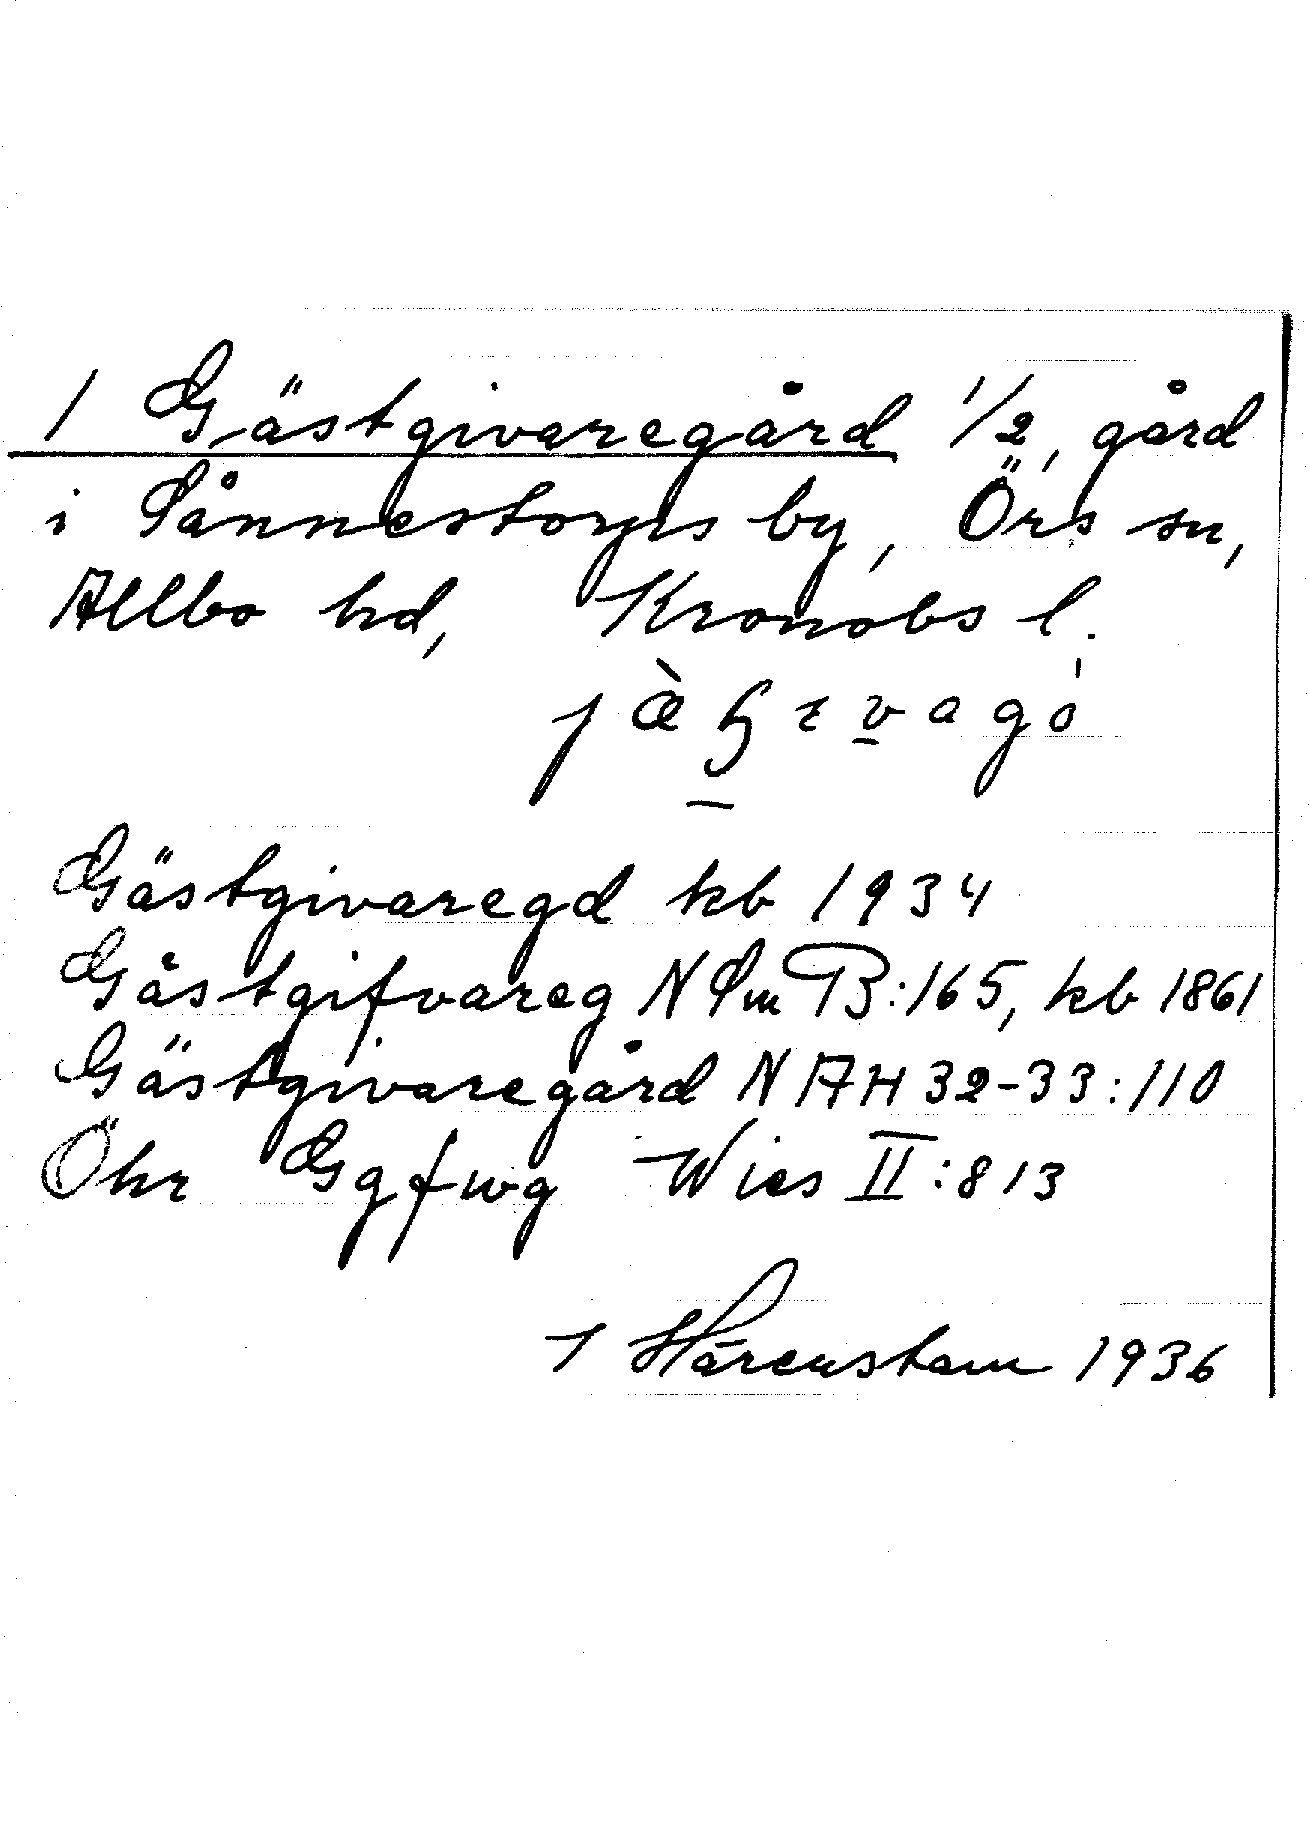 1 Gästgivaregård 1/2, gård
i Sånnestorps by, Örs sn,
Allbo hd, Kronobs l.
Gästgivaregd kb 1934
Gästgifvareg NSm B:165, kb 1861
Gästgivaregård NAH 32-33:110
Öhr Ggfwg Wies II:813
I Hårenstam 1936